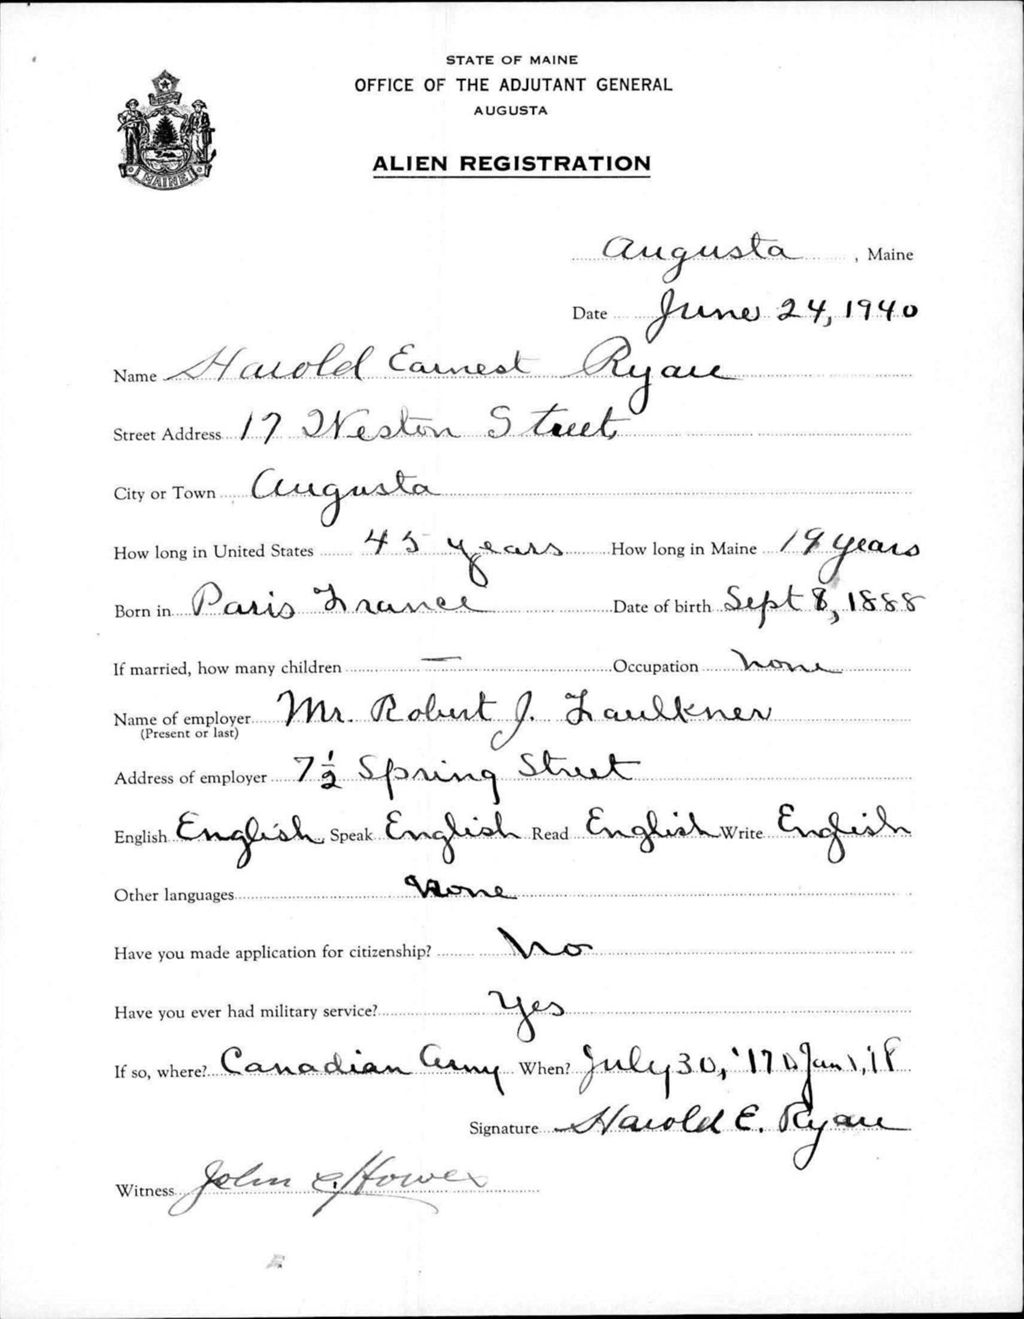 STATE OF MAINE
OFFICE OF THE ADJUTANT GENERAL
AUGUSTA
ALIEN REGISTRATION
MAINE
Augusta, Maine
Date June 24, 1940
Name Harold Earnest Ryan
Street Address 17 Weston Street
City or Town Augusta
How long in United States 45 years How long in Maine 19 years
Born in Paris France Date of birth Sept 8, 1888
If married, how many children — Occupation none
Name of employer Mr. Robert J. Faulkner
(Present or last)
Address of employer 7 1/2 Spring Street
English English Speak English Read English Write English
Other languages None
Have you made application for citizenship? No
Have you ever had military service? Yes
If so, where? Canadian Army When? July 30, '17 to Jan 1, 18
Signature Harold E. Ryan
Witness John E. Howes